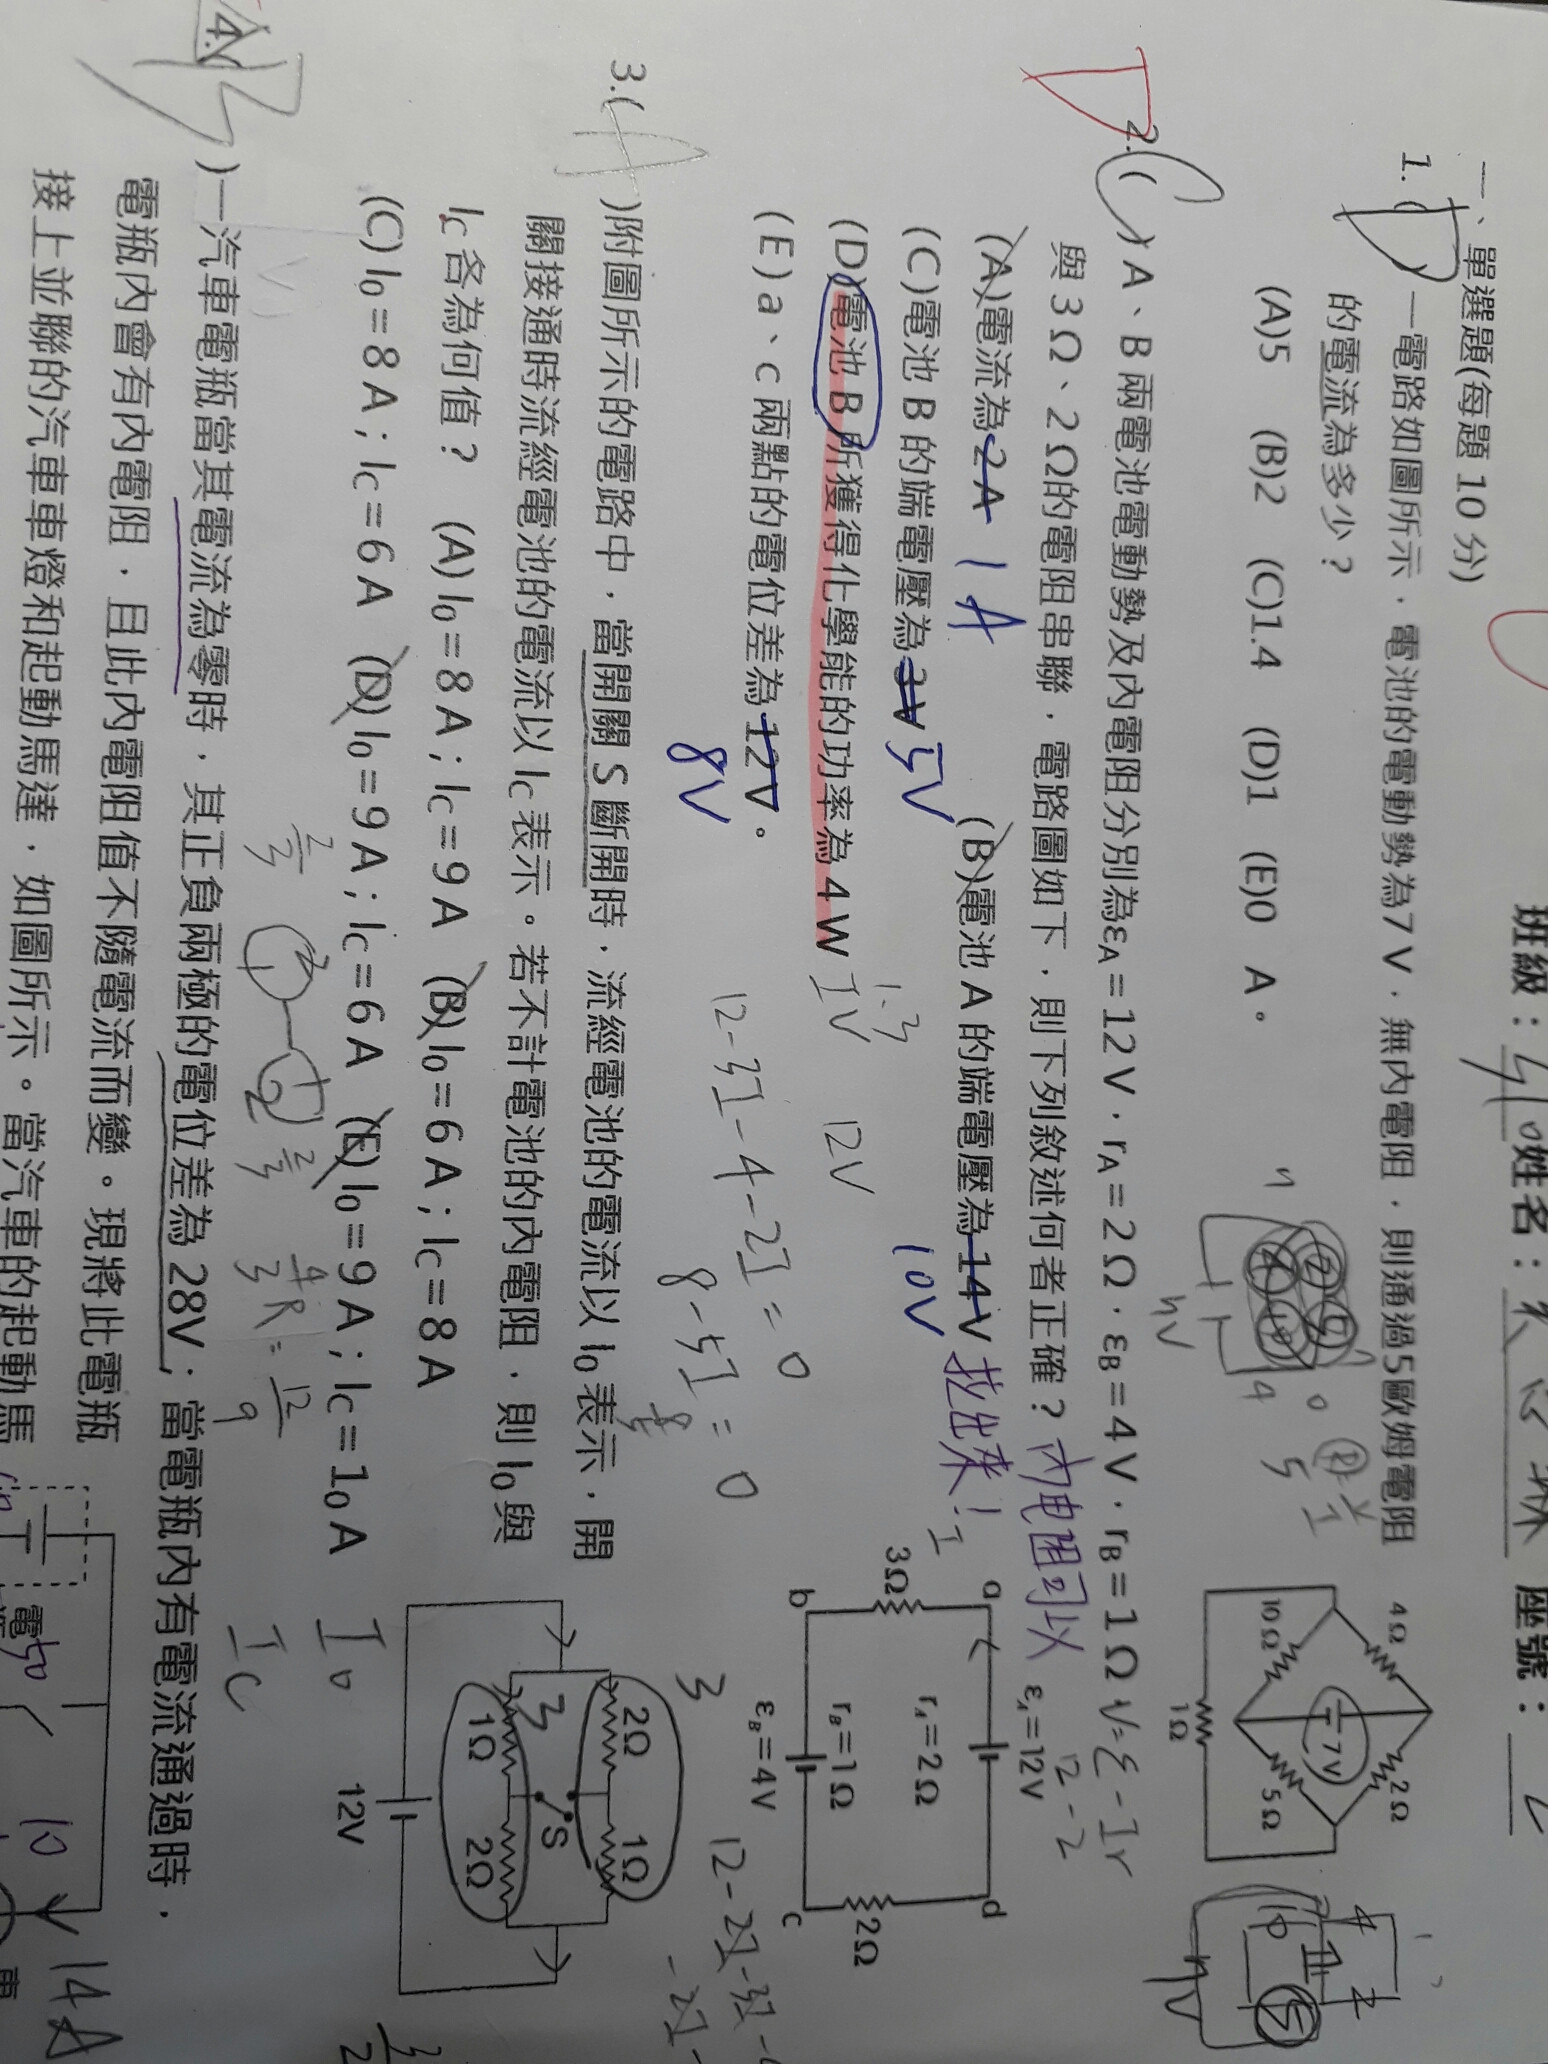 班級： 姓名： 座號：
一、單選題(每題 10 分)
1.( D )一電路如圖所示，電池的電動勢為 7 V，無內電阻，則通過5歐姆電阻
的電流為多少？
(A)5 (B)2 (C)1.4 (D)1 (E)0 A。
4Ω
2Ω
7V
10Ω
5Ω
1Ω
2.( C )A、B 兩電池電動勢及內電阻分別為εA＝12 V，rA＝2 Ω，εB＝4 V，rB＝1 Ω
V=ε-Ir
12-2
與 3 Ω、2 Ω的電阻串聯，電路圖如下，則下列敘述何者正確？
(A)電流為 2 A 1A (B)電池 A 的端電壓為 14 V
10V
內电阻可以
挖出来!
(C)電池 B 的端電壓為 3 V 5V
(D)電池 B 所獲得化學能的功率為 4 W
IV
12V
(E) a、c 兩點的電位差為 12 V。
8V
12-3I-4-2I=0
8-5I=0
εA＝12V
a
d
I
rA＝2Ω
3Ω
2Ω
rB＝1Ω
b
c
εB＝4V
3.( A )附圖所示的電路中，當開關 S 斷開時，流經電池的電流以 I0 表示，開
關接通時流經電池的電流以 IC 表示。若不計電池的內電阻，則 I0 與
IC 各為何值？ (A) I0＝8 A；IC＝9 A (B) I0＝6 A；IC＝8 A
(C) I0＝8 A；IC＝6 A (D) I0＝9 A；IC＝6 A (E) I0＝9 A；IC＝10 A
2Ω
1Ω
S
1Ω
2Ω
12V
3
3
I0
IC
4.( B )一汽車電瓶當其電流為零時，其正負兩極的電位差為 28V；當電瓶內有電流通過時，
電瓶內會有內電阻，且此內電阻值不隨電流而變。現將此電瓶
接上並聯的汽車車燈和起動馬達，如圖所示。當汽車的起動馬
50
10
14A